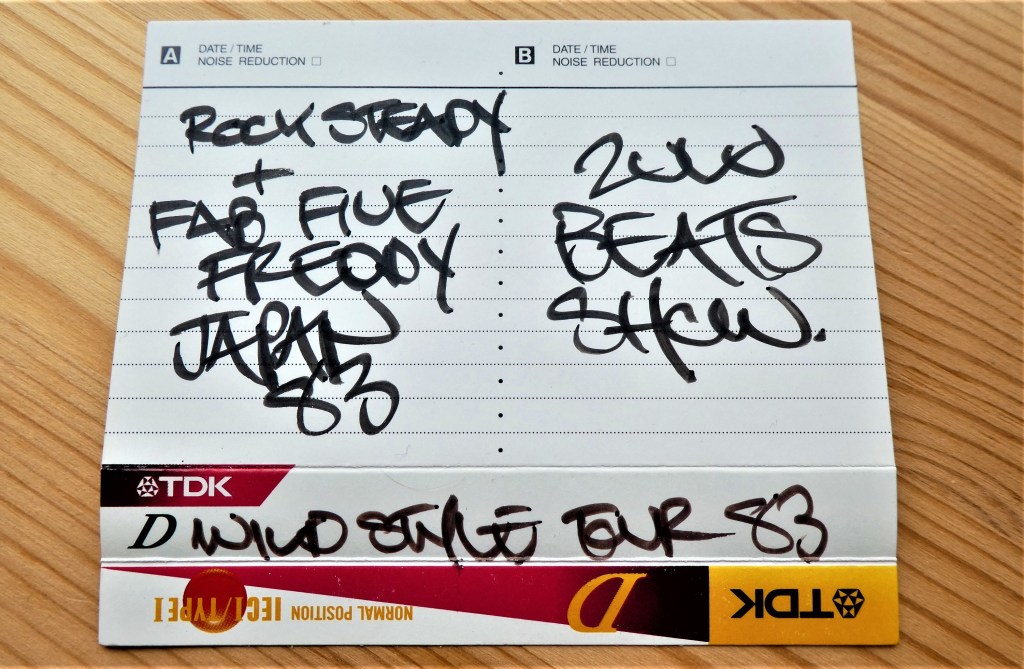 A DATE / TIME
NOISE REDUCTION
B DATE / TIME
NOISE REDUCTION
ROCK STEADY
+
FAB FIVE
FREDDY
JAPAN
83
BEATS
SHOW.
TDK
D WILD STYLE TOUR 83
TDK
D
NORMAL POSITION IECI/TYPE I